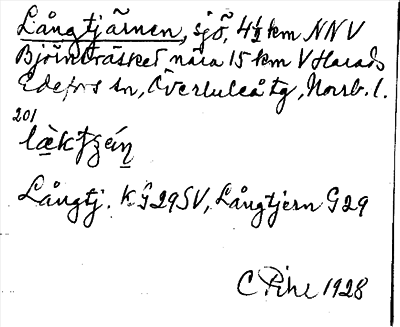 Långtjärnen, sjö, 4½ km NNV
Björnträsket nära 15 km V Harads
Edefors sn, Överluleå tg, Norrb. l.
201
Långtj. KG29SV, Långtjern G29
C Pihl 1928